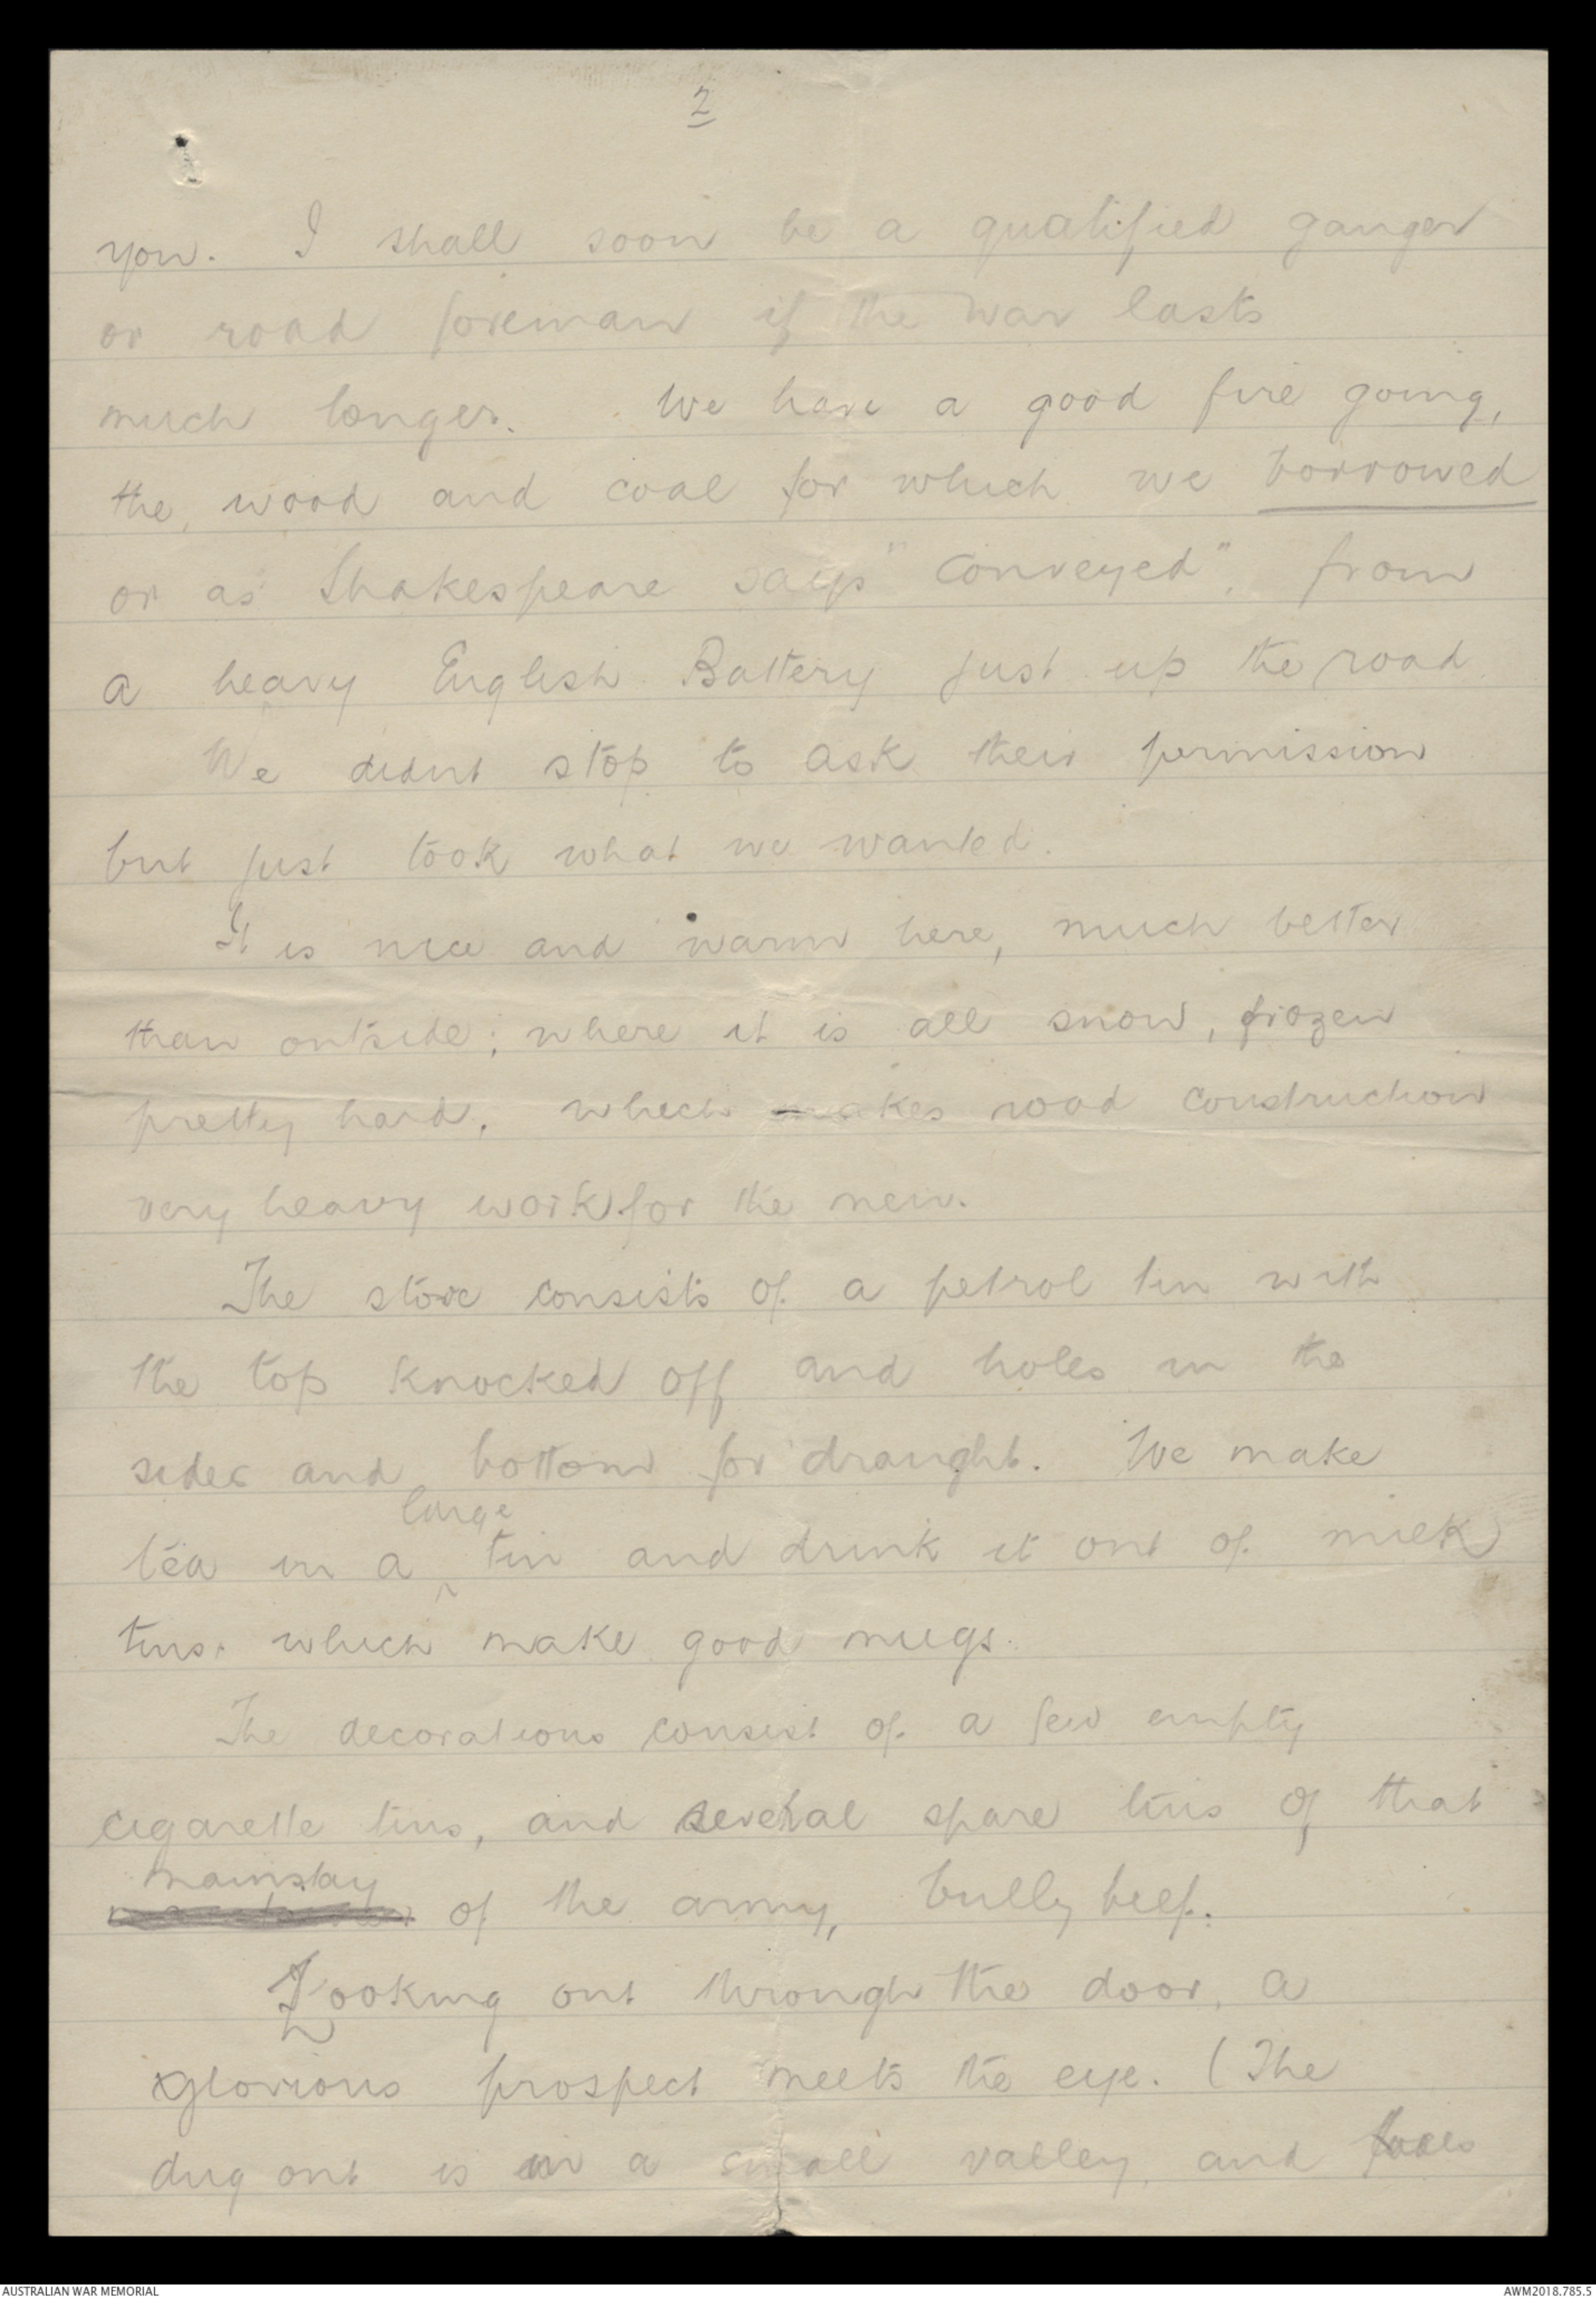 2
you. I shall soon be a qualified ganger
or road foreman if the war lasts
much longer. We have a good fire going,
the wood and coal for which we borrowed
or as Shakespeare says "conveyed", from
a heavy English Battery just up the road
We didnt stop to ask their permission
but just took what we wanted.
It is nice and warm here, much better
than outside; where it is all snow, frozen
pretty hard, which makes road construction
very heavy work for the men.
The stove consists of a petrol tin with
the top knocked off and holes in the
sides and bottom for draught. We make
large
tea in a ^ tin and drink it out of milk
tins. which make good mugs.
The decorations consist of a few empty
cigarette tins, and several spare tins of that
mainstay
of the army, bully beef.
Looking out through the door, a
glorious prospect meets the eye. (The
dug out is in a small valley, and faces
AUSTRALIAN WAR MEMORIAL
AWM2018.785.5